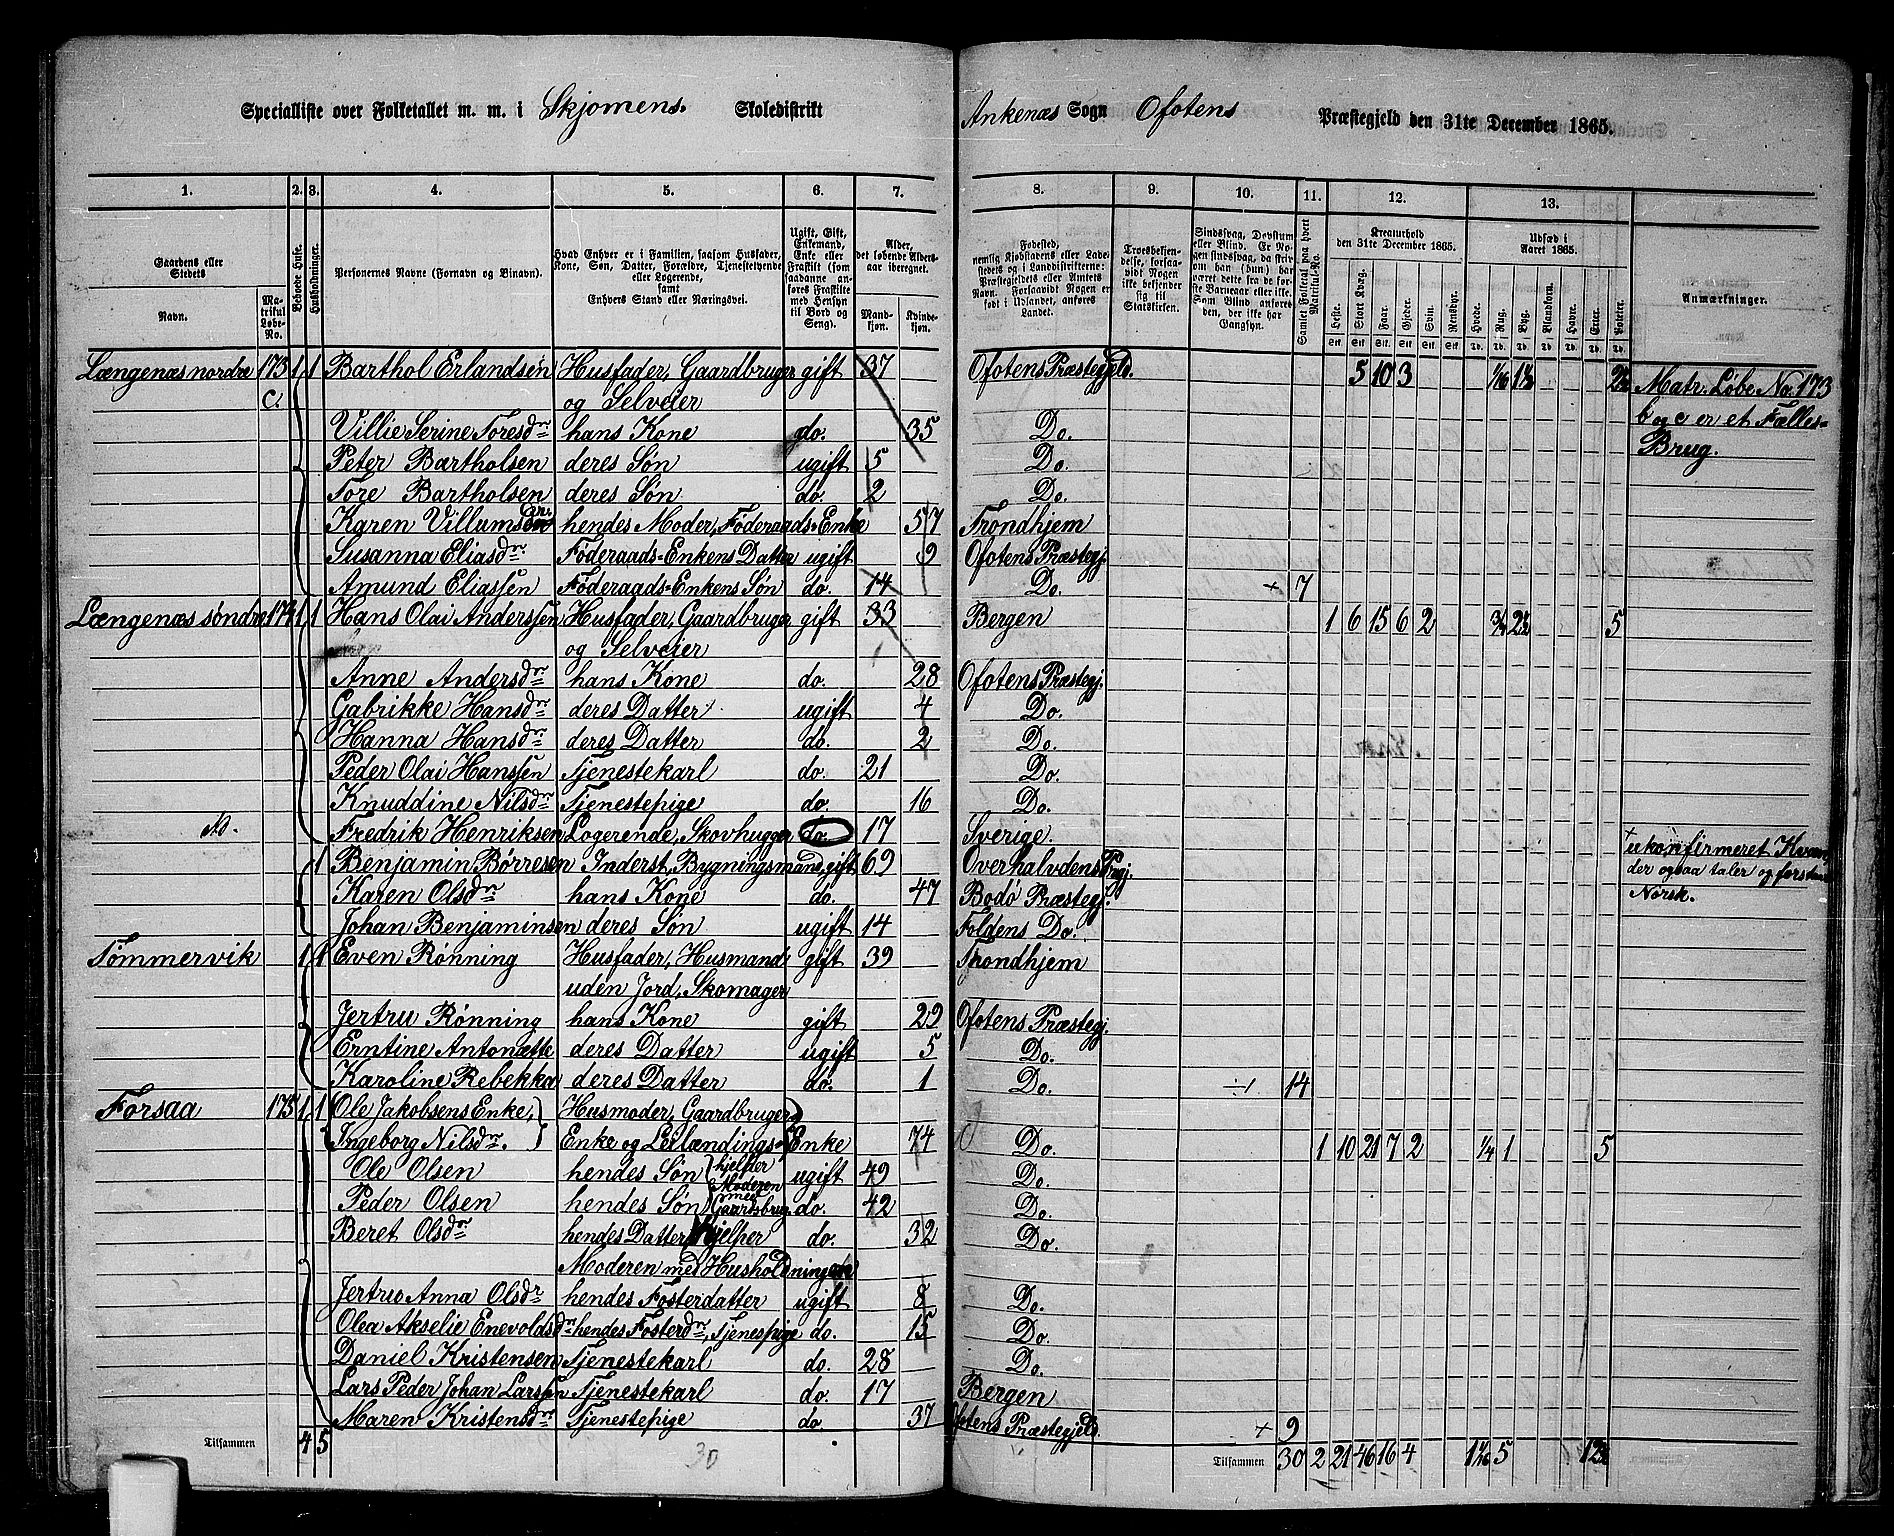 Specialliste over Folketallet m. m. i Skjomens Skoledistrikt Ankenæs Sogn Ofotens Præstegjeld den 31te December 1865.
1. 2. 3. 4. 5. 6. 7. 8. 9. 10. 11. 12. 13.
Gaardens eller Stedets
Navn.
Matrikul Løbe-No.
Beboede Huse.
Husholdninger.
Personernes Navne (Fornavn og Binavn).
Hvad Enhver er i Familien, saasom Husfader, Kone, Søn, Datter, Forældre, Tjenestetyende eller Logerende, samt Enhvers Stand eller Næringsvei.
Ugift, Gift, Enkemand, Enke eller Fraskilt (som saadanne anføres Fraskilte med Hensyn til Bord og Seng).
Alder, det løbende Aldersaar iberegnet.
Mandkjøn. Kvindekjøn.
Fødested, nemlig Kjøbstadens eller Ladestedets og i Landdistrikterne: Præstegjeldets eller Amtets Navn. Forsaavidt Nogen er født i Udlandet, anføres Landet.
Troesbekjendelse, forsaavidt Nogen ikke bekjender sig til Statskirken.
Samlet Folketal paa hvert Matrikul-No.
Kreaturhold den 31te December 1865.
Heste. Stort Kvæg. Faar. Gjeder. Svin. Rensdyr.
Udsæd i Aaret 1865.
Hvede. Rug. Byg. Blandkorn. Havre. Erter. Poteter.
Anmærkninger.
Længenæs nordre 173 1 1 Barthol Erlandsen Husfader, Gaardbruger gift 37 Ofotens Præstegjeld. 5 10 3 Matr. Løbe No. 173
c. og Selveier b og c er et Fælles-
Villie Serine Toresdr hans Kone do. 35 Do. Brug.
Peter Bartholsen deres Søn ugift 5 Do.
Tore Bartholsen deres Søn do. 2 Do.
Karen Villumsdr hendes Moder, Føderaads-Enke 57 Trondhjem
Susanna Eliasdr Føderaads-Enkens Datter ugift 9 Ofotens Præstegj.
Amund Eliassen Føderaads-Enkens Søn do. 14 Do. + 7
Længenæs søndre 174 1 1 Hans Olai Anderssen Husfader, Gaardbruger gift 33 Bergen 1 6 15 6 2 5
og Selveier
Anne Andersdr hans Kone do. 28 Ofotens Præstegj.
Gabrikke Hansdr deres Datter ugift 4 Do.
Hanna Hansdr deres Datter do. 2 Do.
Peder Olai Hanssen Tjenestekarl do. 21 Do.
Knuddine Nilsdr Tjenestepige do. 16 Do.
Fredrik Henriksen Logerende, Skovhugger do. 17 Sverige + ukonfirmeret Kvæn,
1 Benjamin Børresen Inderst, Bygningsmand, gift 69 Overhalvdens Prgj. der ogsaa taler og forstaar
Karen Olsdr hans Kone do. 47 Bodø Præstegj. Norsk.
Johan Benjaminsen deres Søn ugift 14 Foldens Do.
Tømmervik 1 1 Even Rønning Husfader, Husmand gift 39 Trondhjem
uden Jord, Skomager
Jertru Rønning hans Kone gift 29 Ofotens Præstegj.
Erntine Antonætte deres Datter ugift 5 Do.
Karoline Rebekka deres Datter do. 1 Do. 14
Forsaa 175 1 1 Ole Jakobsens Enke, Husmoder, Gaardbruger,
Ingeborg Nilsdr. Enke og Leilændings- Enke 74 Do. 1 10 21 7 2 1/4 1 5
Ole Olsen hendes Søn hjelper ugift 49 Do.
Moderen
Peder Olsen hendes Søn med Gaardsbrug. do. 42 Do.
Beret Olsdr hendes Datter hjelper do. 32 Do.
Moderen med Husholdningen
Jertru Anna Olsdr hendes Fosterdatter ugift 8 Do.
Olea Akselie Enevoldsdr hendes Fosterdr, Tjenepige do. 15 Do.
Daniel Kristensen Tjenestekarl do. 28 Do.
Lars Peder Johan Larssen Tjenestekarl do. 17 Bergen
Maren Kristensdr Tjenestepige do 37 Ofotens Præstegjeld. + 9
Tilsammen 4 5 30 Tilsammen 30 2 21 46 16 4 5